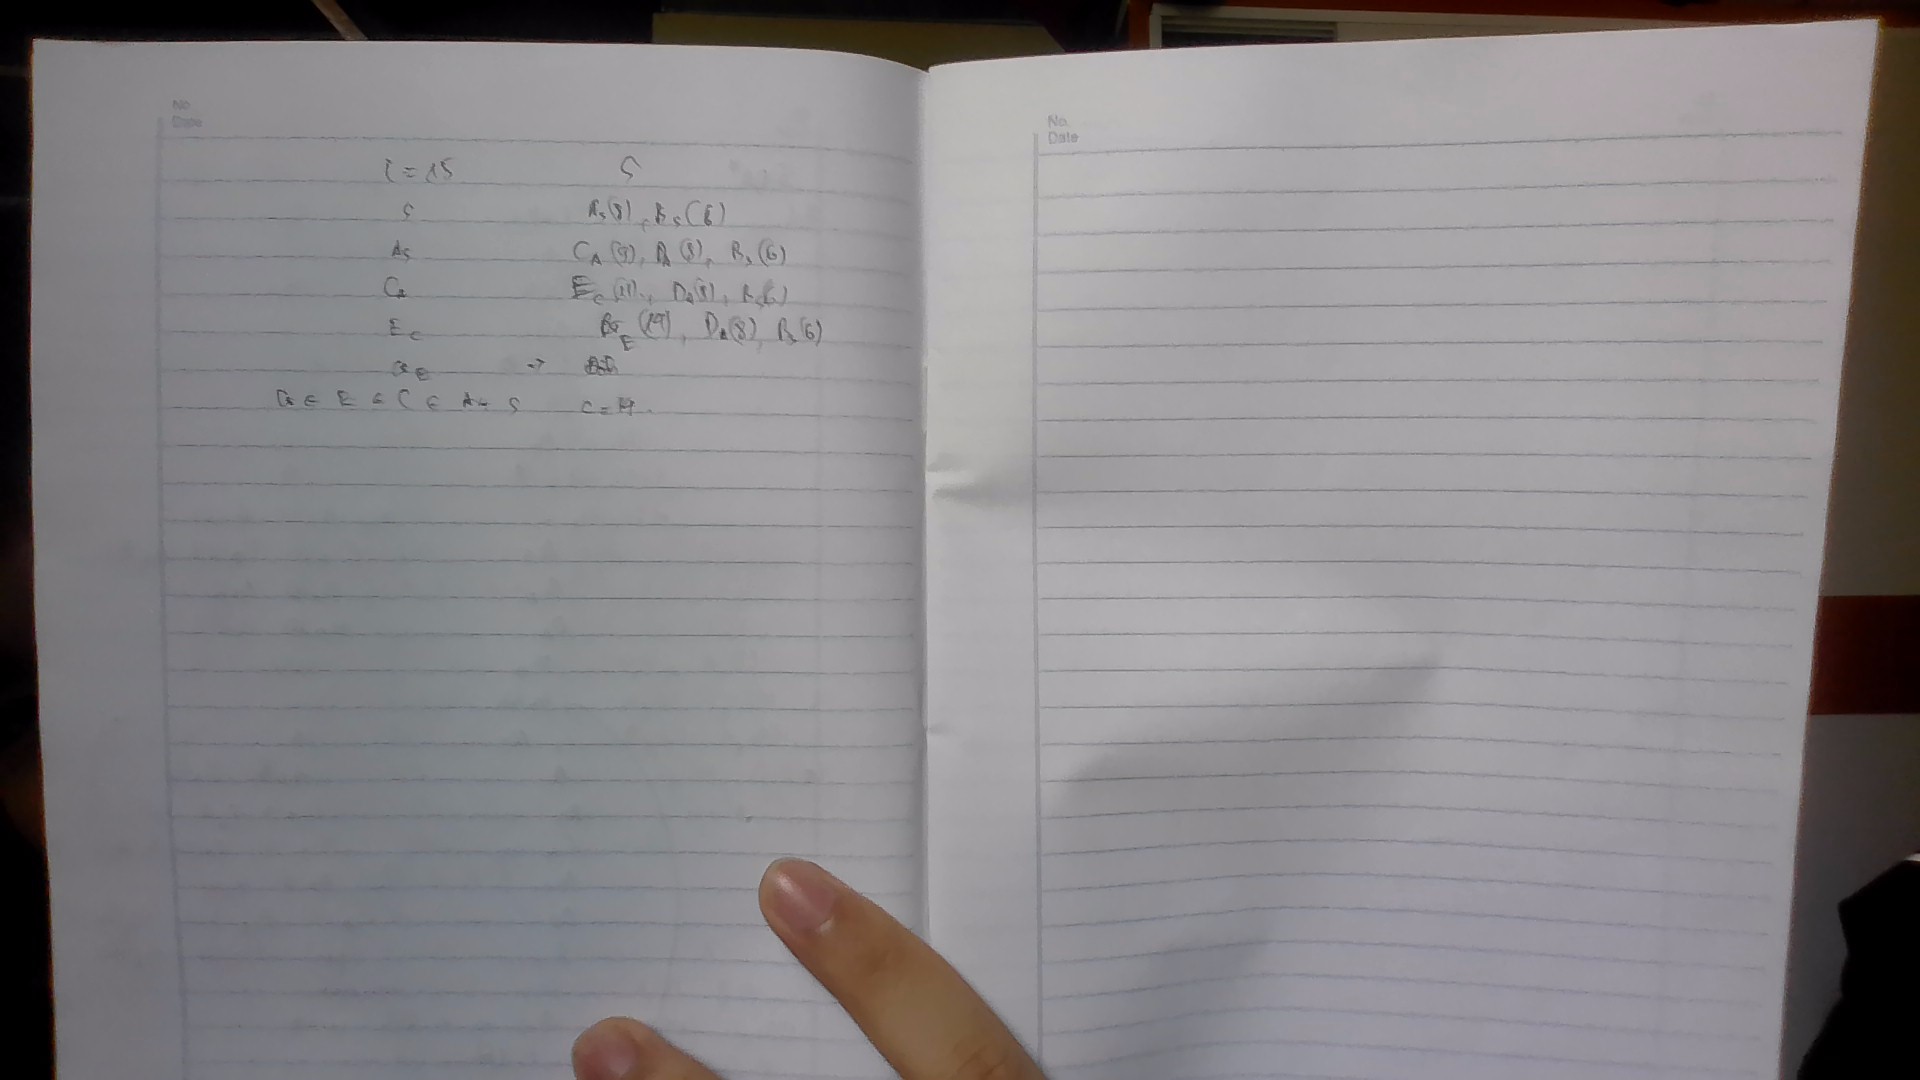 No
Date
i = 15 S
S A_S(8), B_S(6)
A_S C_A(9), D_A(8), B_S(6)
C_A E_C(11), D_A(8), B_S(6)
E_C G_E(19), D_A(8), B_S(6)
G_E →
G ← E ← C ← A ← S C = 19.
No.
Date